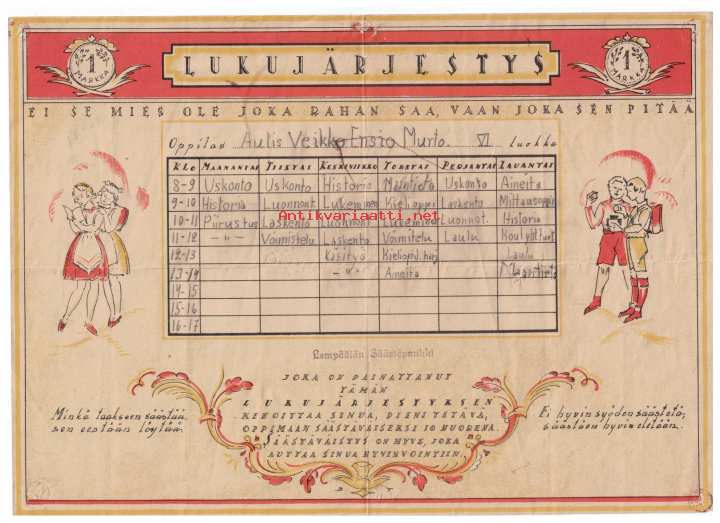 1 MARKKA
LUKUJÄRJESTYS
1 MARKKA
EI SE MIES OLE JOKA RAHAN SAA, VAAN JOKA SEN PITÄÄ
Oppilas Aulis Veikko Ensio Murto. VI luokka
KLO MAANANTAI TIISTAI KESKIVIIKKO TORSTAI PERJANTAI LAUANTAI
8-9 Uskonto Uskonto Historia Uskonto Aineita
9-10 Historia Luonnont Lukeminen Kielioppi Laskento Mittausoppi
10-11 Piirustus Laskento Luonnont Lukemine Luonnot. Historia
11-12 -"- Voimistelu Laskento Voimitelu Laulu
12-13 Käsityö Laulu
13-14 -"- Aineita
14-15
15-16
16-17
Antikvariaatti.net
Lempäälän Säästöpankki
JOKA ON PAINATTANUT
TÄMÄN
LUKUJÄRJESTYKSEN
KEHOITTAA SINUA, PIENI YSTÄVÄ,
OPPIMAAN SÄÄSTÄVÄISEKSI JO NUORENA.
SÄÄSTÄVÄISYYS ON HYVE, JOKA
AUTTAA SINUA HYVINVOINTIIN.
Minkä taakseen säästää
sen eestään löytää.
Ei hyvin syöden säästetä,
säästäen hyvin eletään.